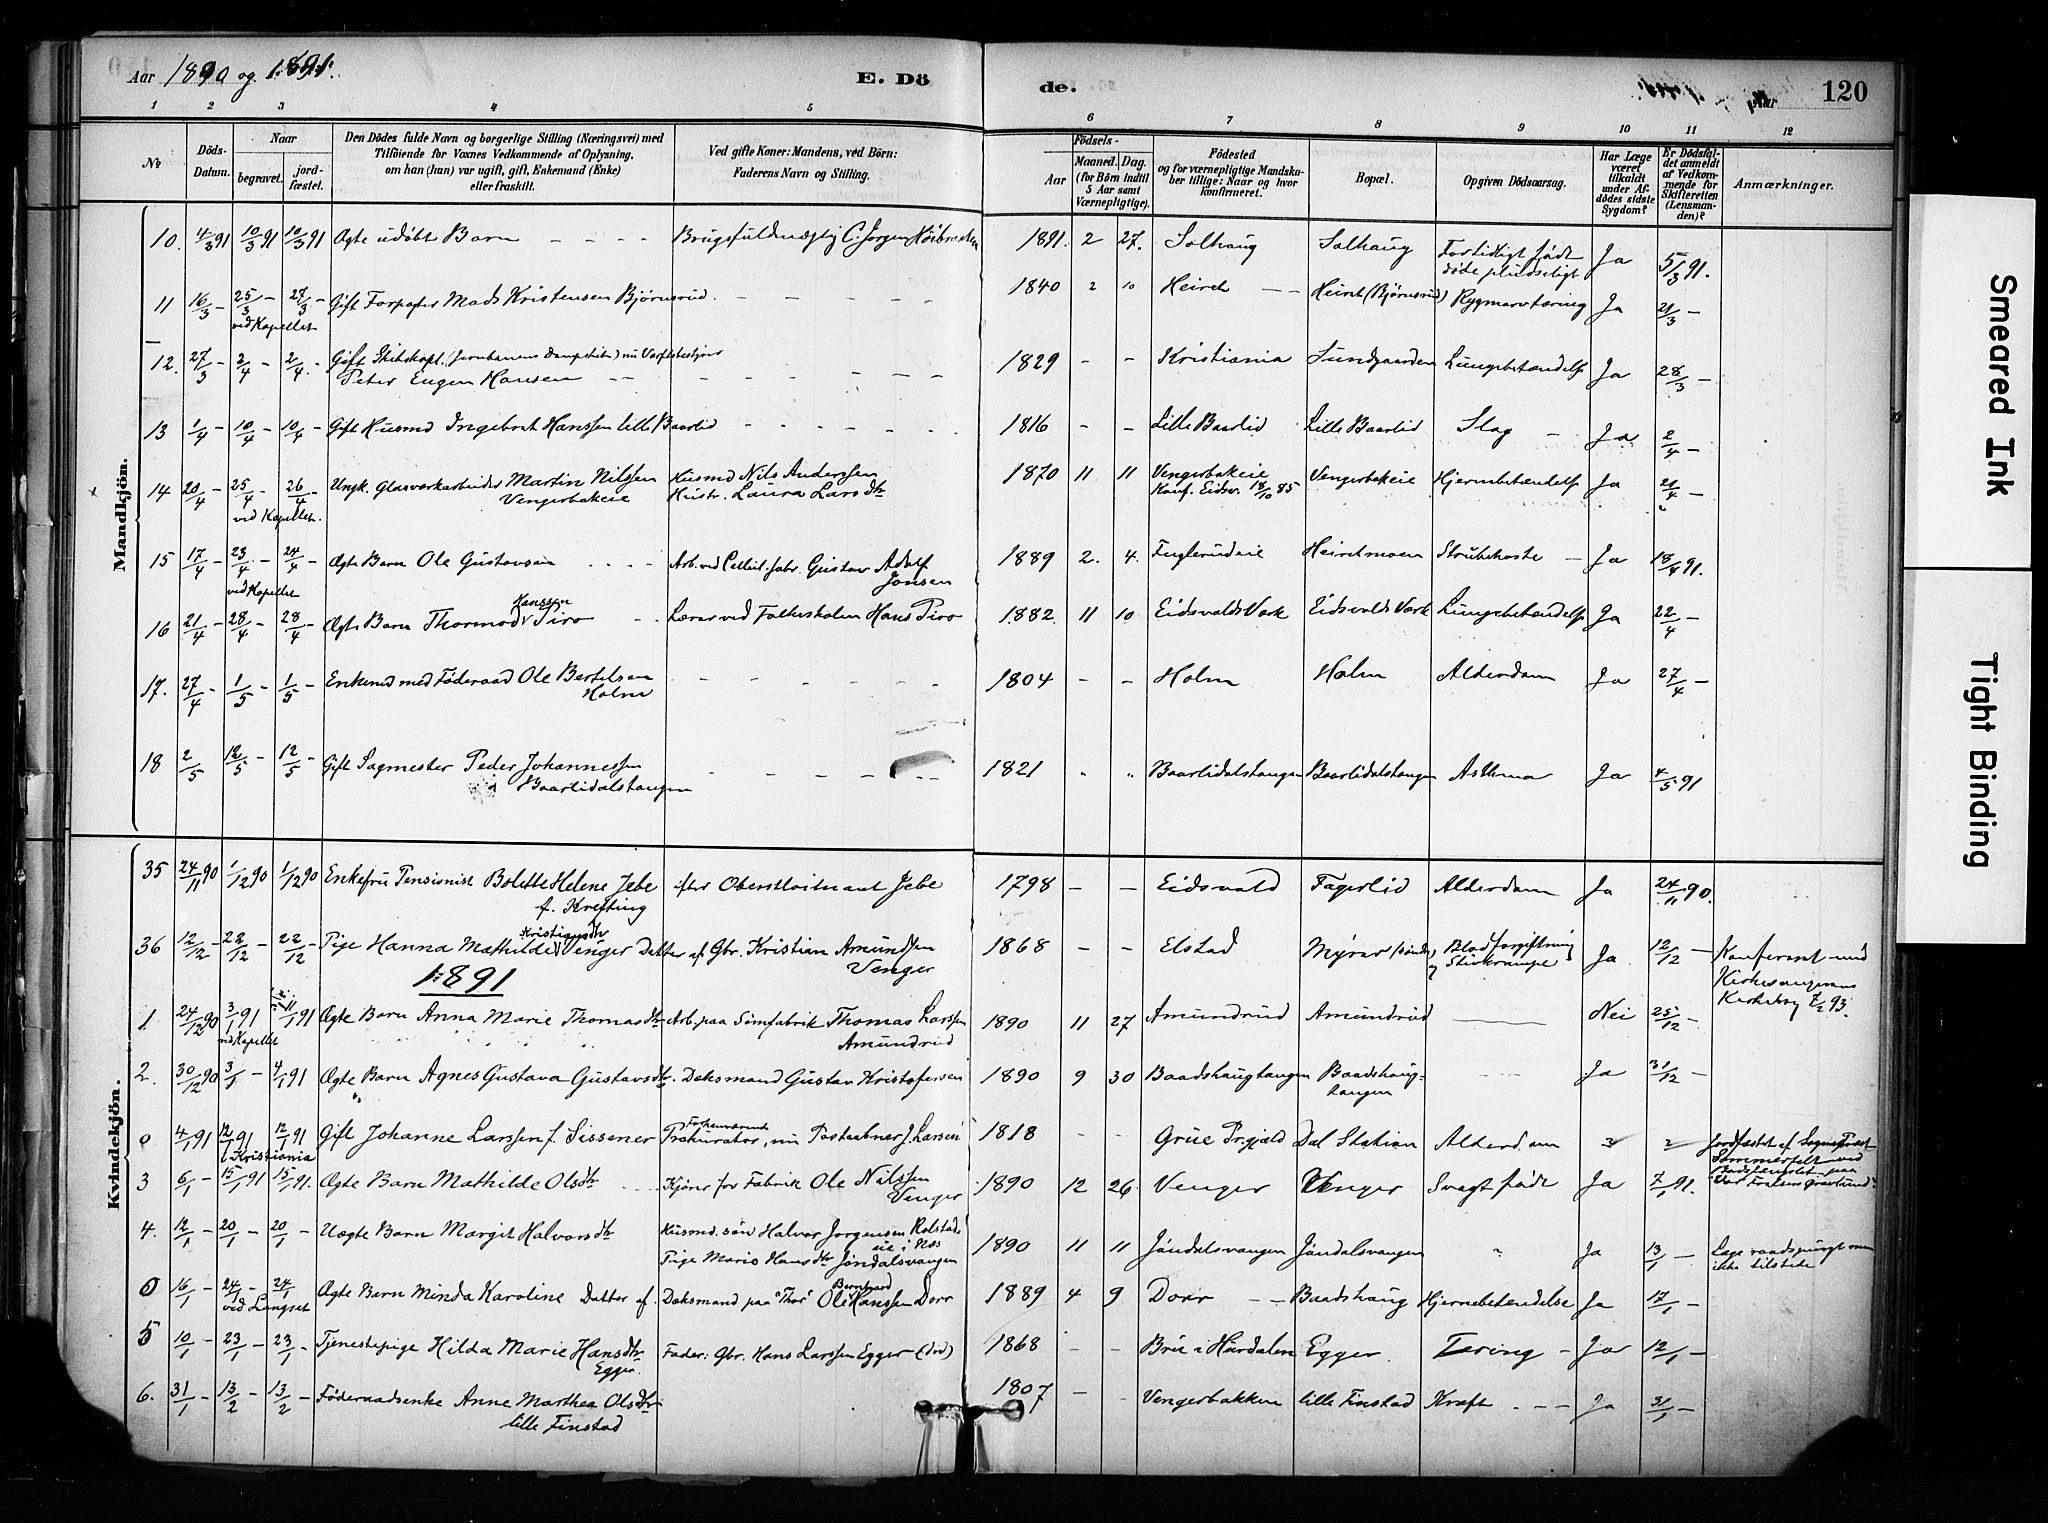 Aar 1890 og 1891.
E. Dö
de.
Aar
120
1 2 3 4 5 6 7 8 9 10 11 12
No
Döds-
Datum.
Naar
begravet.
jord-
fæstet.
Den Dödes fulde Navn og borgerlige Stilling (Næringsvei) med
Tilföiende for Voxnes Vedkommende af Oplysning,
om han (hun) var ugift, gift, Enkemand (Enke)
eller fraskilt.
Ved gifte Koner: Mandens, ved Börn:
Faderens Navn og Stilling.
Födsels-
Aar
Maaned.
Dag.
(for Börn indtil
5 Aar samt
Værnepligtige).
Födested
og for værnepligtige Mandska-
ber tillige: Naar og hvor
konfirmeret.
Bopæl.
Opgiven Dödsaarsag.
Har Læge
været
tilkaldt
under Af-
dödes sidste
Sygdom?
Er Dödsfal-
det anmeldt
af Vedkom-
mende for
Skifteretten
(Lensman-
den)?
Anmærkninger.
Mandkjön.
10. 4/3 91 10/3 91 10/3 91 Ægte udöbt Barn - - - - 1891. 2 27. Solhaug Solhaug Fortidligt født døde pludseligt Ja 5/3 91.
11 16/3 - 25/3 - 27/3 - Gift Mads Kristensen Bjørnsrud. - - - - 1840 2 10 (Bjørnsrud) Rygmarvtæring Ja 21/3 -
ved Kapellet
12. 27/3 - 2/4 - 2/4. - Gift
Peter Eugen Hansen - - - - 1829 - - Kristiania Sundgaarden Lungebetændelse Ja 28/3 -
13 1/4 - 10/4 - 10/4 - Gift Husmd Ingebret Hanssen lille Baarlid - - - - 1816 - - Lille Baarlid Lille Baarlid Slag - Ja 2/4 -
14 20/4 - 25/4 - 26/4 - Ungk. Glasværkarbeider Martin Nilssen Husmd Nils Anderssen 1870 11 11 Vengerbakeie Vengerbakeie Hjernebetændelse Ja 21/4 -
ved Kapellet. Vengerbakeie Hustr. Laura Larsdtr Konf. Eidsv. 18/10 85
15 17/4 - 23/4 - 24/4 - Ægte Barn Ole Gustavsen - - - - Arb. ved Cellul. fabr. Gustav Adolf 1889 2. 4. Fuglerudeie Heiretmoen Strubehoste - Ja 18/4 91.
ved Kapellet Jonsen
16 21/4 - 28/4 - 28/4 - Ægte Barn Thormod Hanssen Piro - Lærer ved Folkeskolen Hans Piro 1882 11 10 Eidsvolds Værk Eidsvolds Værk Lungebetændelse Ja 22/4 -
17. 27/4 - 1/5 - 1/5 - Enkemd med Føderaad Ole Bertelsen - - - - 1804 - - Holm Holm Alderdom Ja 27/4 -
Holm
18 2/5 12/5 - 12/5 - Gift Sagmester Peder Johannessen - - - - 1821 " " Baarlidalstangen Baarlidalstangen Asthma Ja 4/5 91
Baarlidalstangen
Kvindekjön.
35 24/11 90 1/12 90 1/12 90 Enkefru Pensionist Bolette Helene Jebe efter Oberstløitnant Jebe 1798 - - Eidsvold Fagerlid Alderdom Ja 24/11 90.
f. Krefting
36 12/12 - 22/12 - 22/12 - Pige Hanna Mathilde Kristiansdtr Venger Datter af Gbr. Kristian Amundsen 1868 - - Elstad Myrer Blodforgiftning Ja 12/12 - Konfereret med
Venger og Stivkrampe Kirkesangerens
1891 Kirkebog 7/2 93.
1 24/12 90 3/1 91 11/1 91 Ægte Barn Anna Marie Thomasdtr Arb. paa Sømfabrik Thomas Larssen 1890 11 27 Amundrud Amundrud - Nei 25/12 -
ved Kapellet Amundrud
2. 30/12 90 3/1 - 4/1 91 Ægte Barn Agnes Gustava Gustavsdtr. Dæksmand Gustav Kristofersen 1890 9 30 Baadshaugtangen Baadshaug- - - Ja 31/12 -
tangen
0 4/1 91 12/1 91 12/1 91 Gift Johanne Larssen f. Sissener Forhenværende Prokurator, nu Postaabner J. Larsen 1818 - - Grue Prgjæld Dal Station Alderdom Jordfæstet af Sogneprest
i Kristiania Sommerfelt ved
paa
"Vor Frelsers Gravlund".
3 6/1 - 15/1 91 15/1 91. Ægte Barn Mathilde Olsdtr - - Kjører for Fabrik Ole Nilssen 1890 12 26 Venger Venger Svagt født Ja 7/1 91.
Venger
4. 12/1 - 20/1 - 20/1 - Uægte Barn Margit Halvorsdtr Husmd. søn Halvor Jørgensen Rolstad- 1890 11 11 Jøndalsvangen Jøndalsvangen " Ja 13/1 - Læge raadspurgt men
eie i Næs ikke tilstede
Pige Marie Hansdtr Jøndalsvangen
0 16/1 - 24/1 - 24/1 Ægte Barn Minda Karoline Datter af. Dæksmand paa "Thor" Ole Bernhard Hanssen Dorr 1889 4 9 Dorr - - Baadshaug Hjernebetændelse Ja 17/1 -
ved Langset
5 10/1 - 23/1 - 23/1 - Tjenestepige Hilda Marie Hansdtr Fader: Gbr. Hans Larssen Egger (død) 1868 - - Brue i Hurdalen Egger Tæring - Ja 12/1 -
Egger.
6. 31/1 - 13/2 - 13/2 - Føderaadsenke Anne Marthea Olsdtr 1807 - - Vengerbakken lille Finstad Kræft - - - Ja 31/1 -
lille Finstad
Smeared Ink
Tight Binding